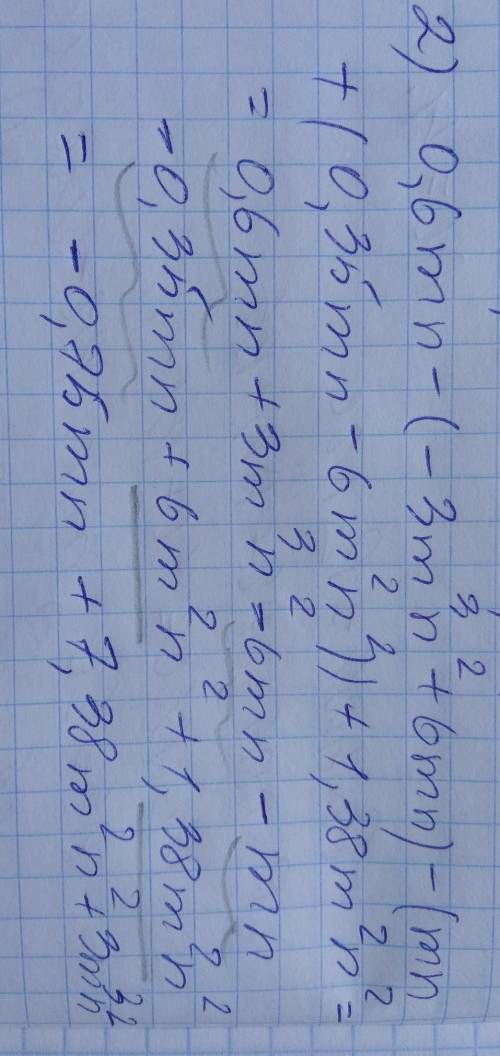 2) 0,6mn-(-3m³n²+6mn)-(mn
+(0,35mn-6m²n²))+1,38m²n²=
=0,6mn+3m³n²-6mn-mn
-0,35mn+6m²n²+1,38m²n²
=-0,75mn+7,38m²n²+3m³n²